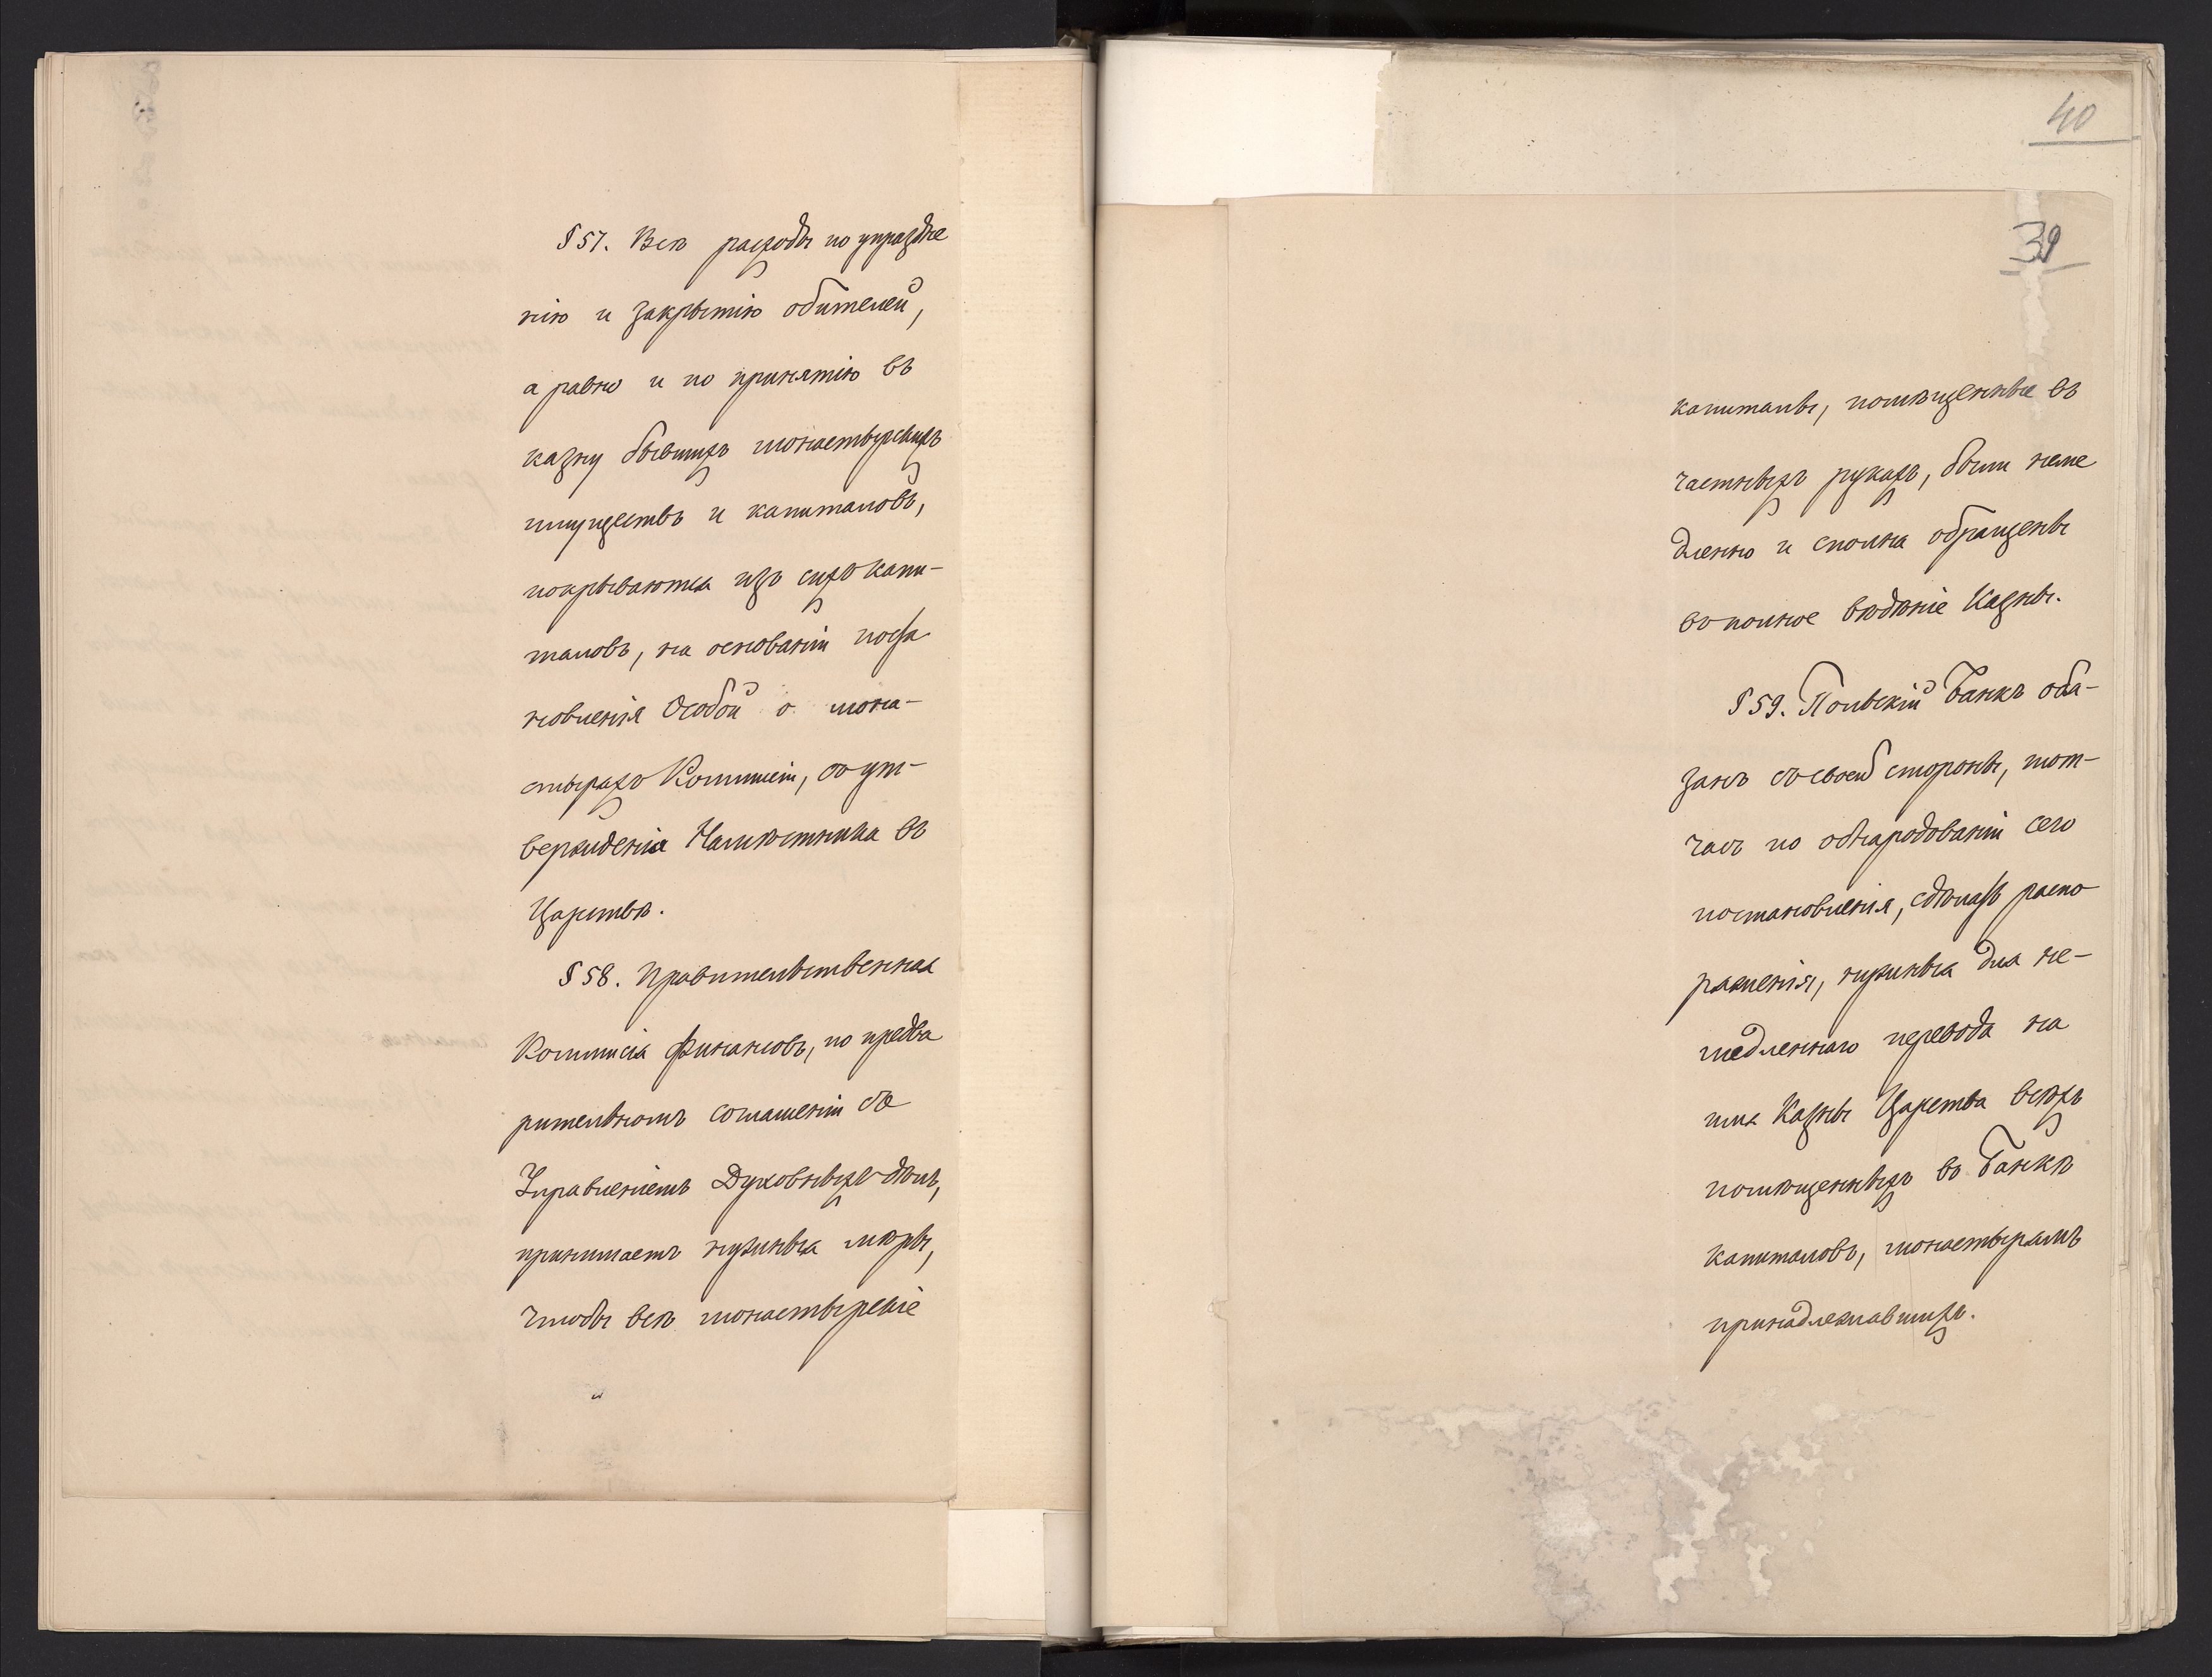 § 57. Всѣ расходы по упраздне
нію и закрытію обителей,
а равно и по принятію въ
казну бывшихъ монастырскихъ
имуществъ и капиталовъ,
покрываются изъ сихъ капи-
таловъ, на основаніи поста
новленія Особой о мона-
стыряхъ Коммисіи, съ ут-
вержденія Намѣстника въ
Царствѣ.
§ 58. Правительственная
Коммисія Финансовъ, по предва
рительномъ соглашеніи съ
Управленіемъ Духовныхъ дѣлъ,
принимаетъ нужныя мѣры,
чтобы всѣ монастырскіе
40
39
капиталы, помѣщенные въ
частныхъ рукахъ, были неме
дленно и сполна обращены
въ полное вѣдѣніе Казны.
§ 59. Польскій Банкъ обя-
занъ съ своей стороны, тот-
часъ по обнародованіи сего
постановленія, сдѣлать распо
ряженія, нужныя для не-
медленнаго перевода на
имя Казны Царства всѣхъ
помѣщенныхъ въ Банкѣ
капиталовъ, монастырямъ
принадлежавшихъ.